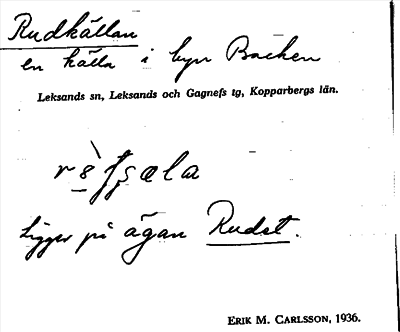 Rudkällan
en källa i byn Backen
Leksands sn, Leksands och Gagnefs tg, Kopparbergs län.
ligger på ägan Rudst.
ERIK M. CARLSSON, 1936.